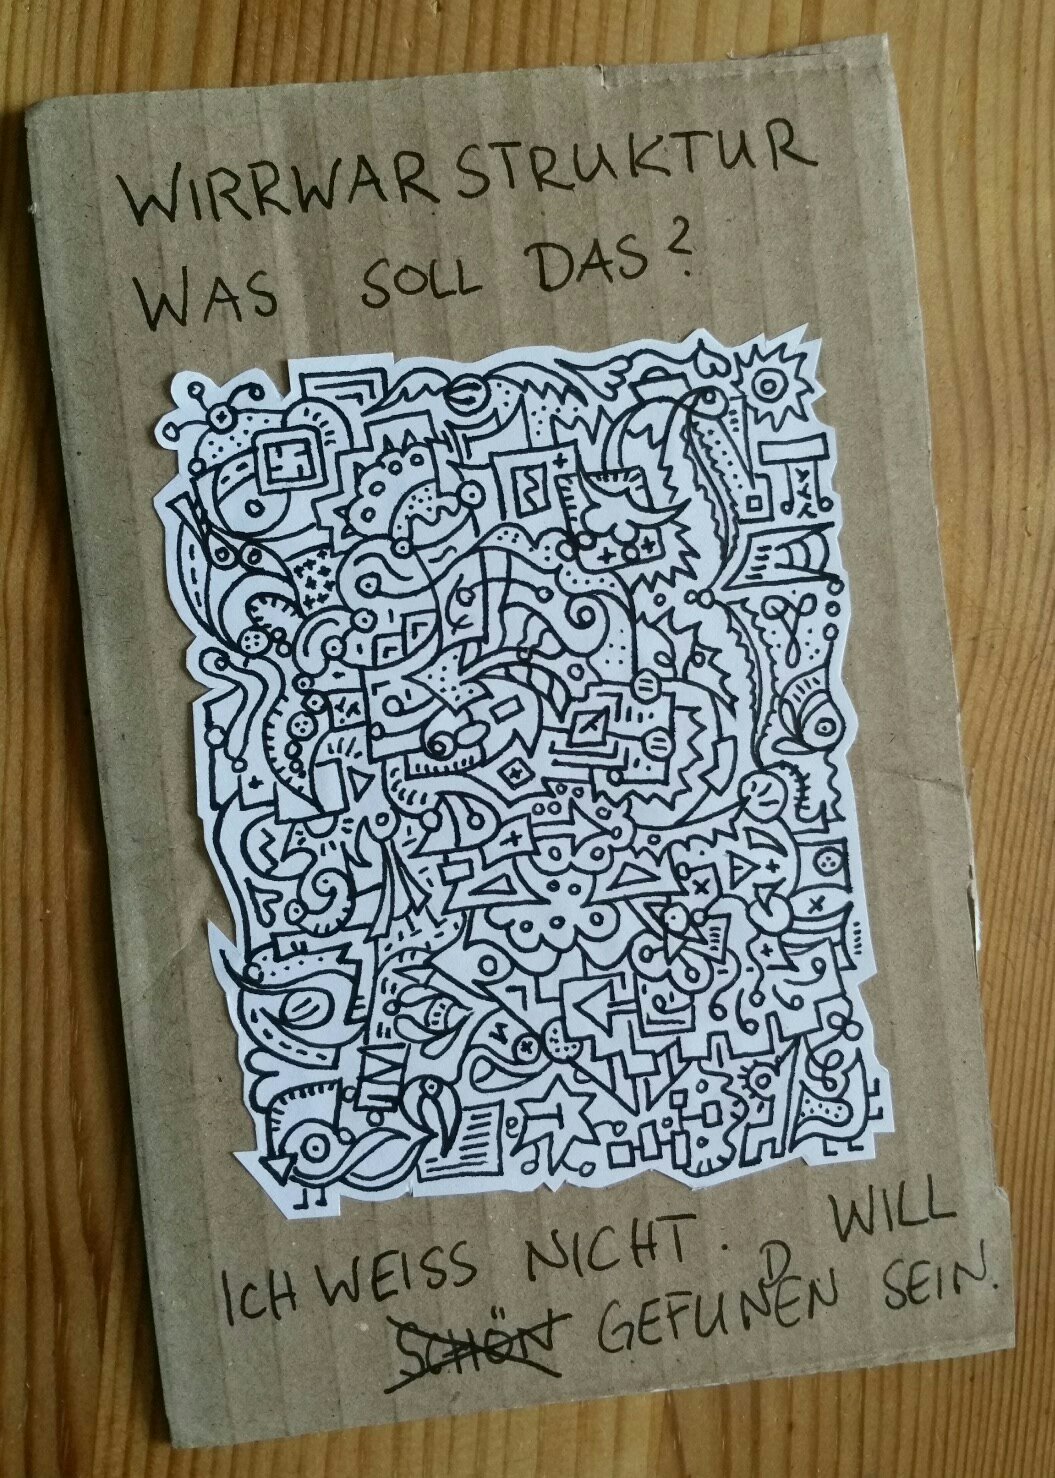 WIRRWAR STRUKTUR
WAS SOLL DAS?
ICH WEISS NICHT. WILL
SCHÖN GEFUNDEN SEIN.